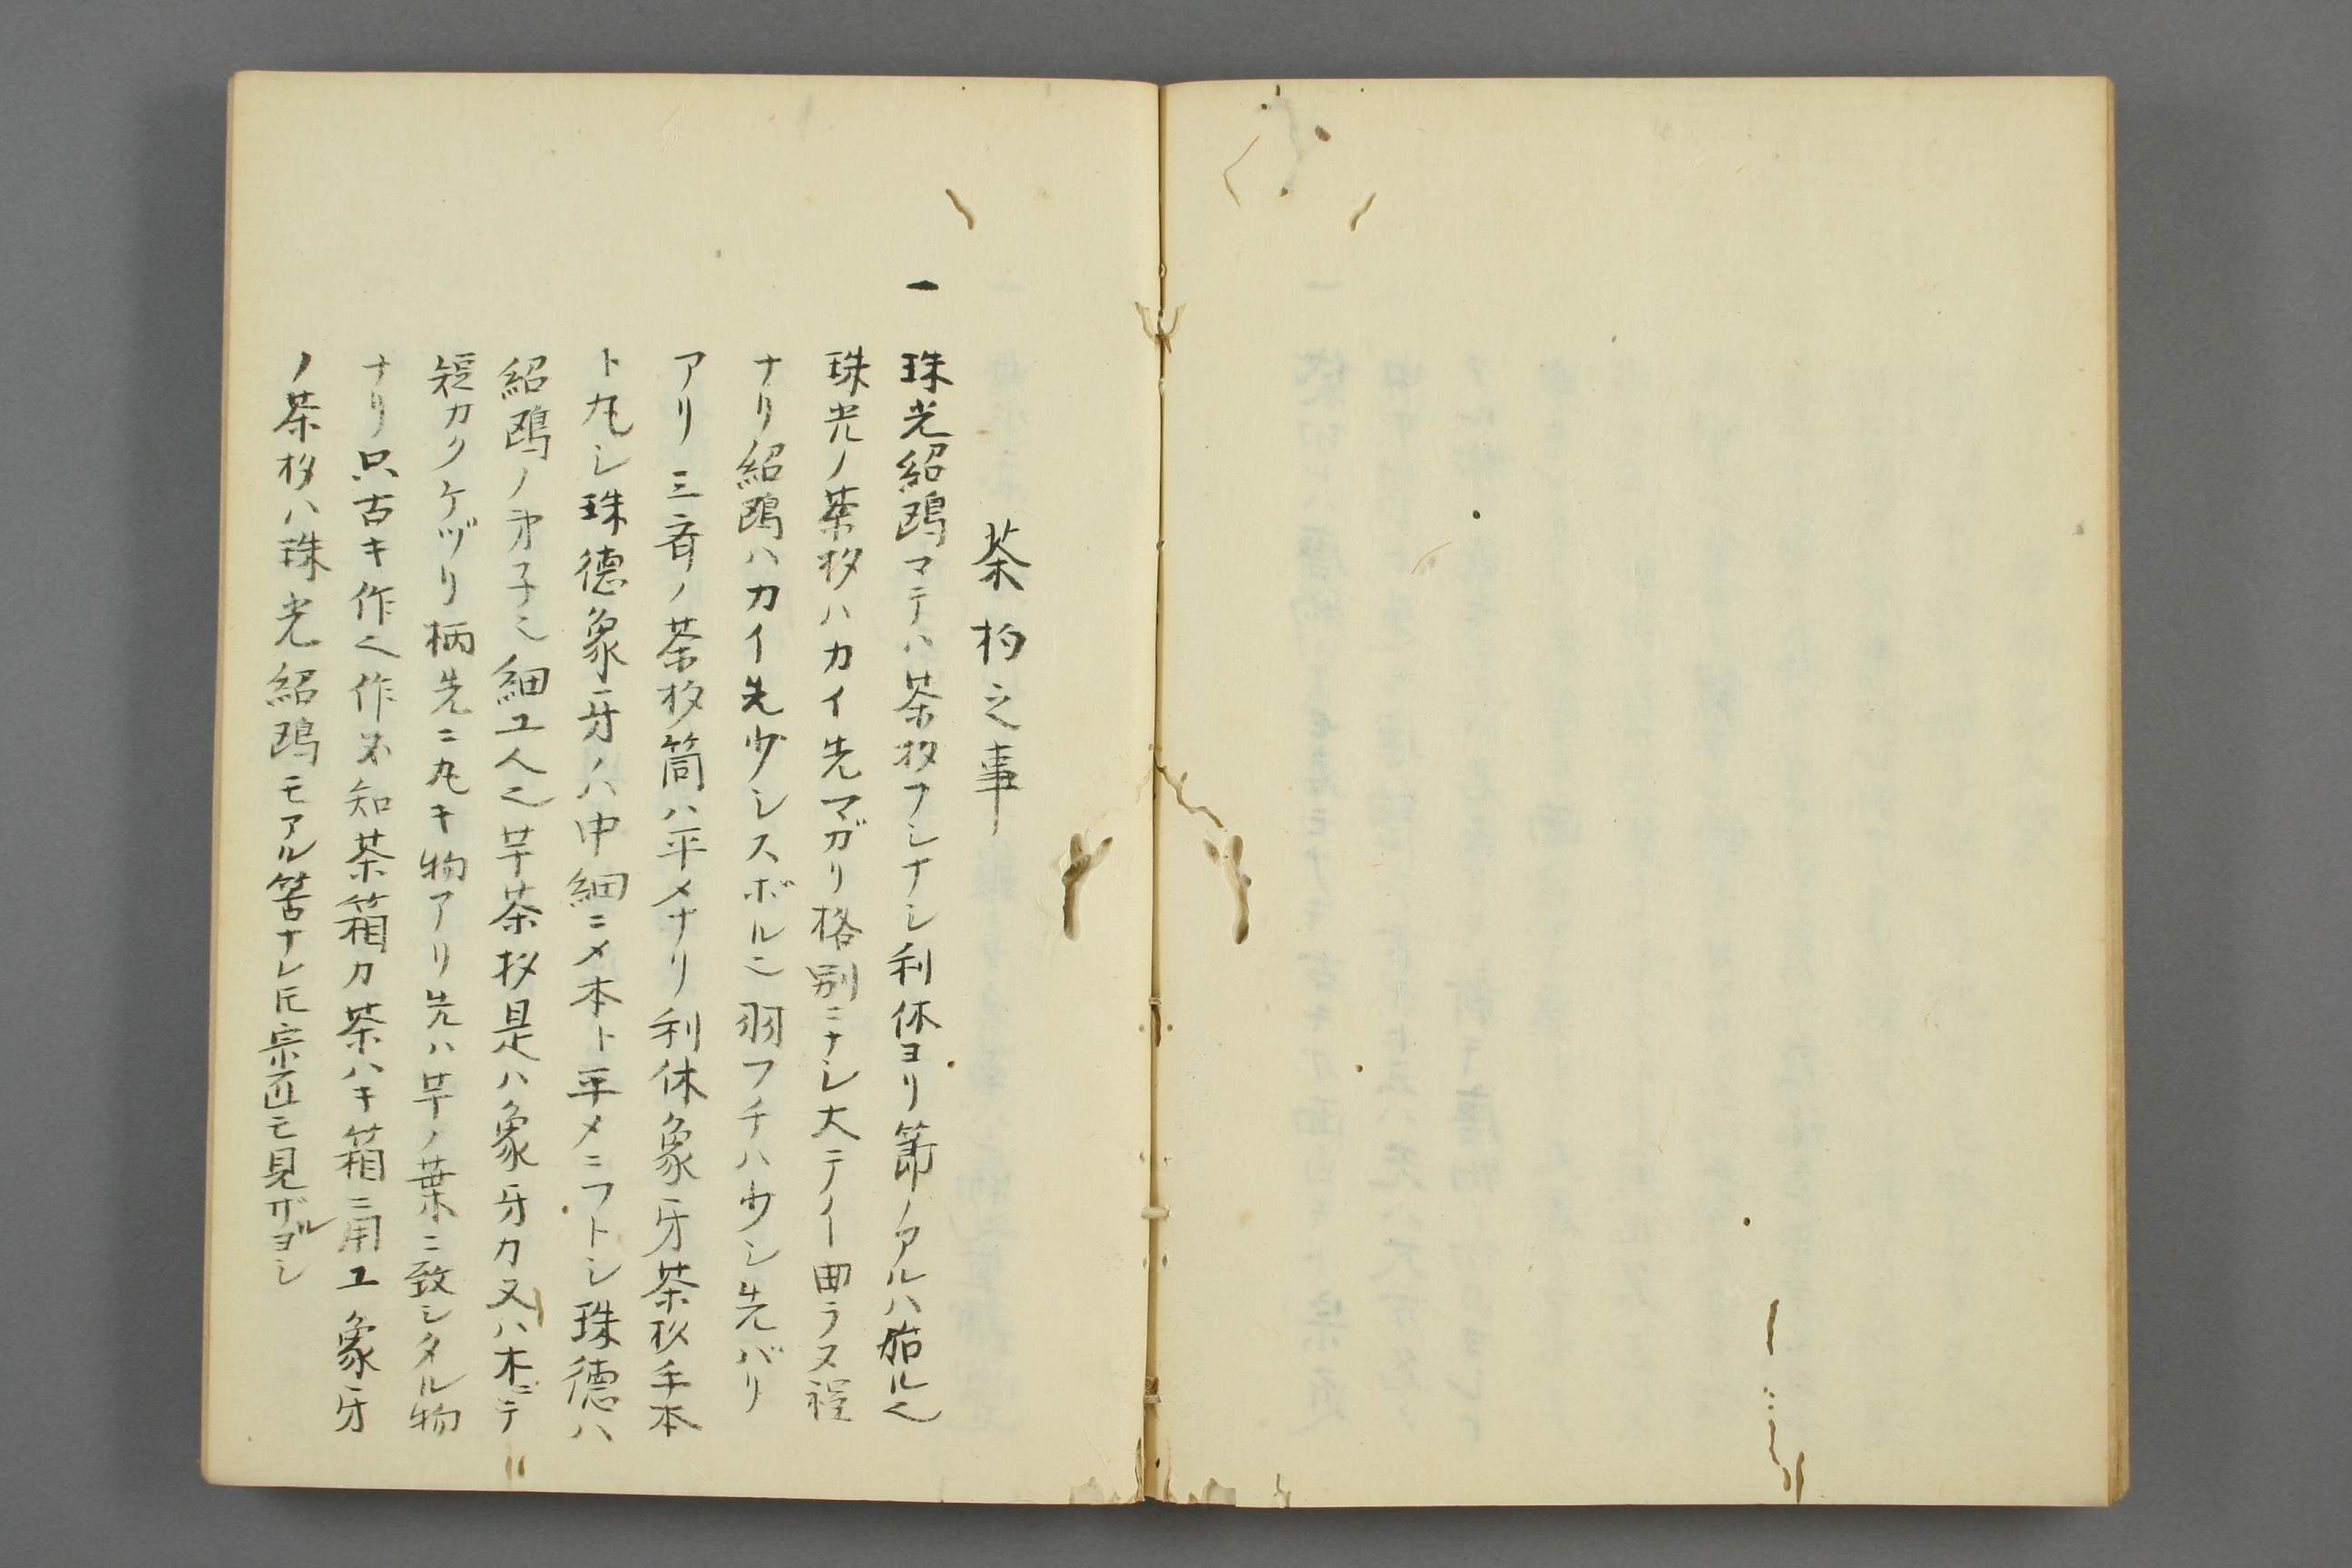 茶杓之事
一 珠光紹鴎マテハ茶杉フシナシ利休ヨリ節ノアルハ始ル也
珠光ノ茶杉ハカイ先マガリ格別ニナシ大テイ曲ラヌ程
ナリ紹鴎ハカイ先少シスボル也羽フチハ少シ先バリ
アリ三斎ノ茶杉筒ハ平メナリ利休象牙茶杉手本
ト丸シ珠德象牙ノハ中細ニメ本ト平メニフトシ珠德ハ
紹鴎ノ弟子也細工人也芋茶杉是ハ象牙カ又ハ木ニテ
短カクケヅリ柄先ニ丸キ物アリ先ハ芋ノ葉ニ致シタル物
ナリ只古キ作也作不知茶箱カ茶ハキ箱ニ用ユ象牙
ノ茶杉ハ珠光紹鴎モアル筈ナレ𪜈宗直モ見ザルヨシ